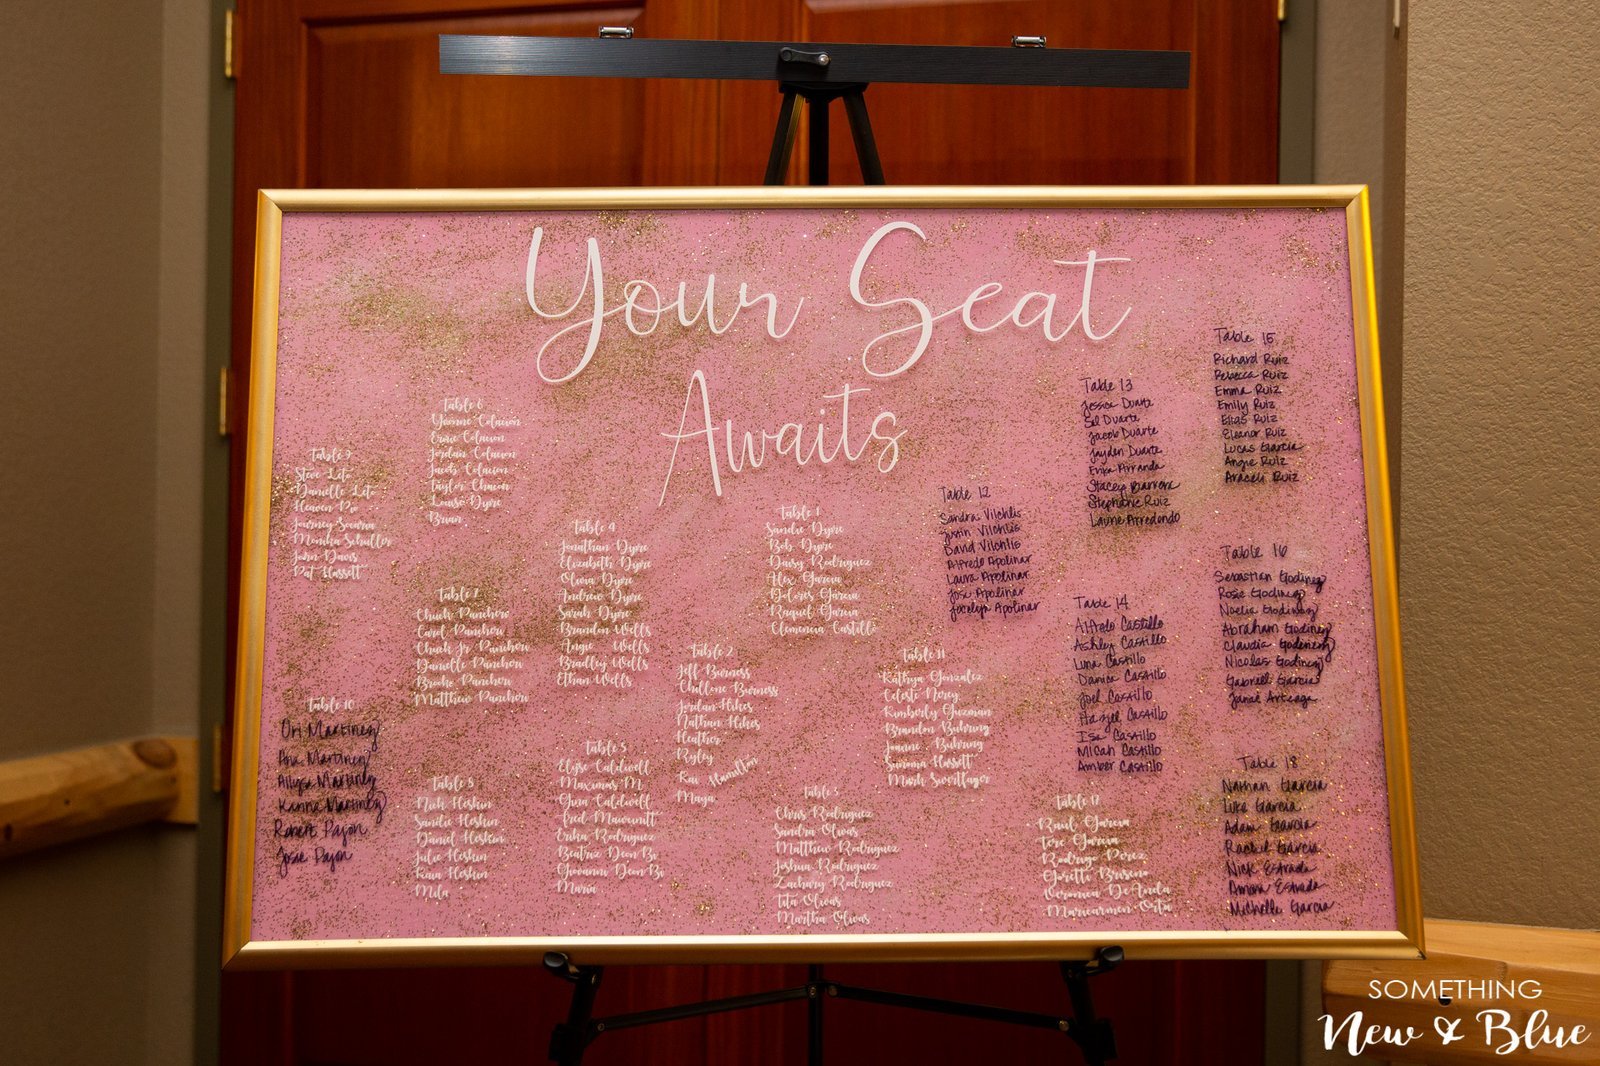 Your Seat
Awaits
Table 9
Steve Leto
Danielle Leto
Heaven Pio
Journey
Monika Schuller
John Davis
Pat Hassett
Table 10
Ori Martinez
Ana Martinez
Allysa Martinez
Karina Martinez
Robert Pajon
Josie Pajon
Table 6
Yvonne Colacion
Ernie Colacion
Jordan Colacion
Jacob Colacion
Taylor Chacon
Louise Dyre
Brian
Table 7
Chuck Pancheri
Carol Pancheri
Chuck Jr Pancheri
Danielle Pancheri
Brooke Pancheri
Matthew Pancheri
Table 8
Nick Heskin
Sandie Heskin
Daniel Heskin
Julie Heskin
Kaia Heskin
Mila
Table 4
Jonathan Dyre
Elizabeth Dyre
Olivia Dyre
Andrew Dyre
Sarah Dyre
Brandon Wells
Angie Wells
Bradley Wells
Ethan Wells
Table 5
Elyse Caldwell
Maximas M.
Gina Caldwell
Fred
Erika Rodriguez
Beatriz Deon Bi
Giovanni Deon Bi
Maria
Table 1
Sandie Dyre
Bob Dyre
Daisy Rodriguez
Alex Garcia
Dolores Garcia
Raquel Garcia
Clemencia Castillo
Table 2
Jeff Burness
Chellene Burness
Jordan Hikes
Nathan Hikes
Heather
Ryley
Kai Hamilton
Maya
Table 3
Chris Rodriguez
Sandra Olivas
Matthew Rodriguez
Joshua Rodriguez
Zachary Rodriguez
Tita Olivas
Martha Olivas
Table 11
Kathya Gonzalez
Celeste Nerey
Kimberly Guzman
Brandon Buhring
Joanne Buhring
Summa Hassett
Mark Swortfager
Table 12
Sandra Vilchlis
Justin Vilchlis
David Vilchlis
Alfredo Apolinar
Laura Apolinar
Jose Apolinar
Jocelyn Apolinar
Table 13
Jessica Duarte
Sal Duarte
Jacob Duarte
Jayden Duarte
Erika Arranda
Stacey Barrera
Stephanie Ruiz
Laurie Arredondo
Table 14
Alfredo Castillo
Ashley Castillo
Luna Castillo
Danica Castillo
Joel Castillo
Hazel Castillo
Isa Castillo
Micah Castillo
Amber Castillo
Table 17
Raul Garcia
Tere Garcia
Rodrigo Perez
Gorette Briseno
Veronica De Anda
Maricarmen Orta
Table 15
Richard Ruiz
Rebecca Ruiz
Emma Ruiz
Emily Ruiz
Elias Ruiz
Eleanor Ruiz
Lucas Garcia
Angie Ruiz
Araceli Ruiz
Table 16
Sebastian Godinez
Rosie Godinez
Noelia Godinez
Abraham Godinez
Claudia Godinez
Nicolas Godinez
Gabriell Garcia
Janae Arteaga
Table 18
Nathan Garcia
Luke Garcia
Adam Garcia
Rachel Garcia
Nick Estrada
Amara Estrada
Michelle Garcia
SOMETHING
New & Blue